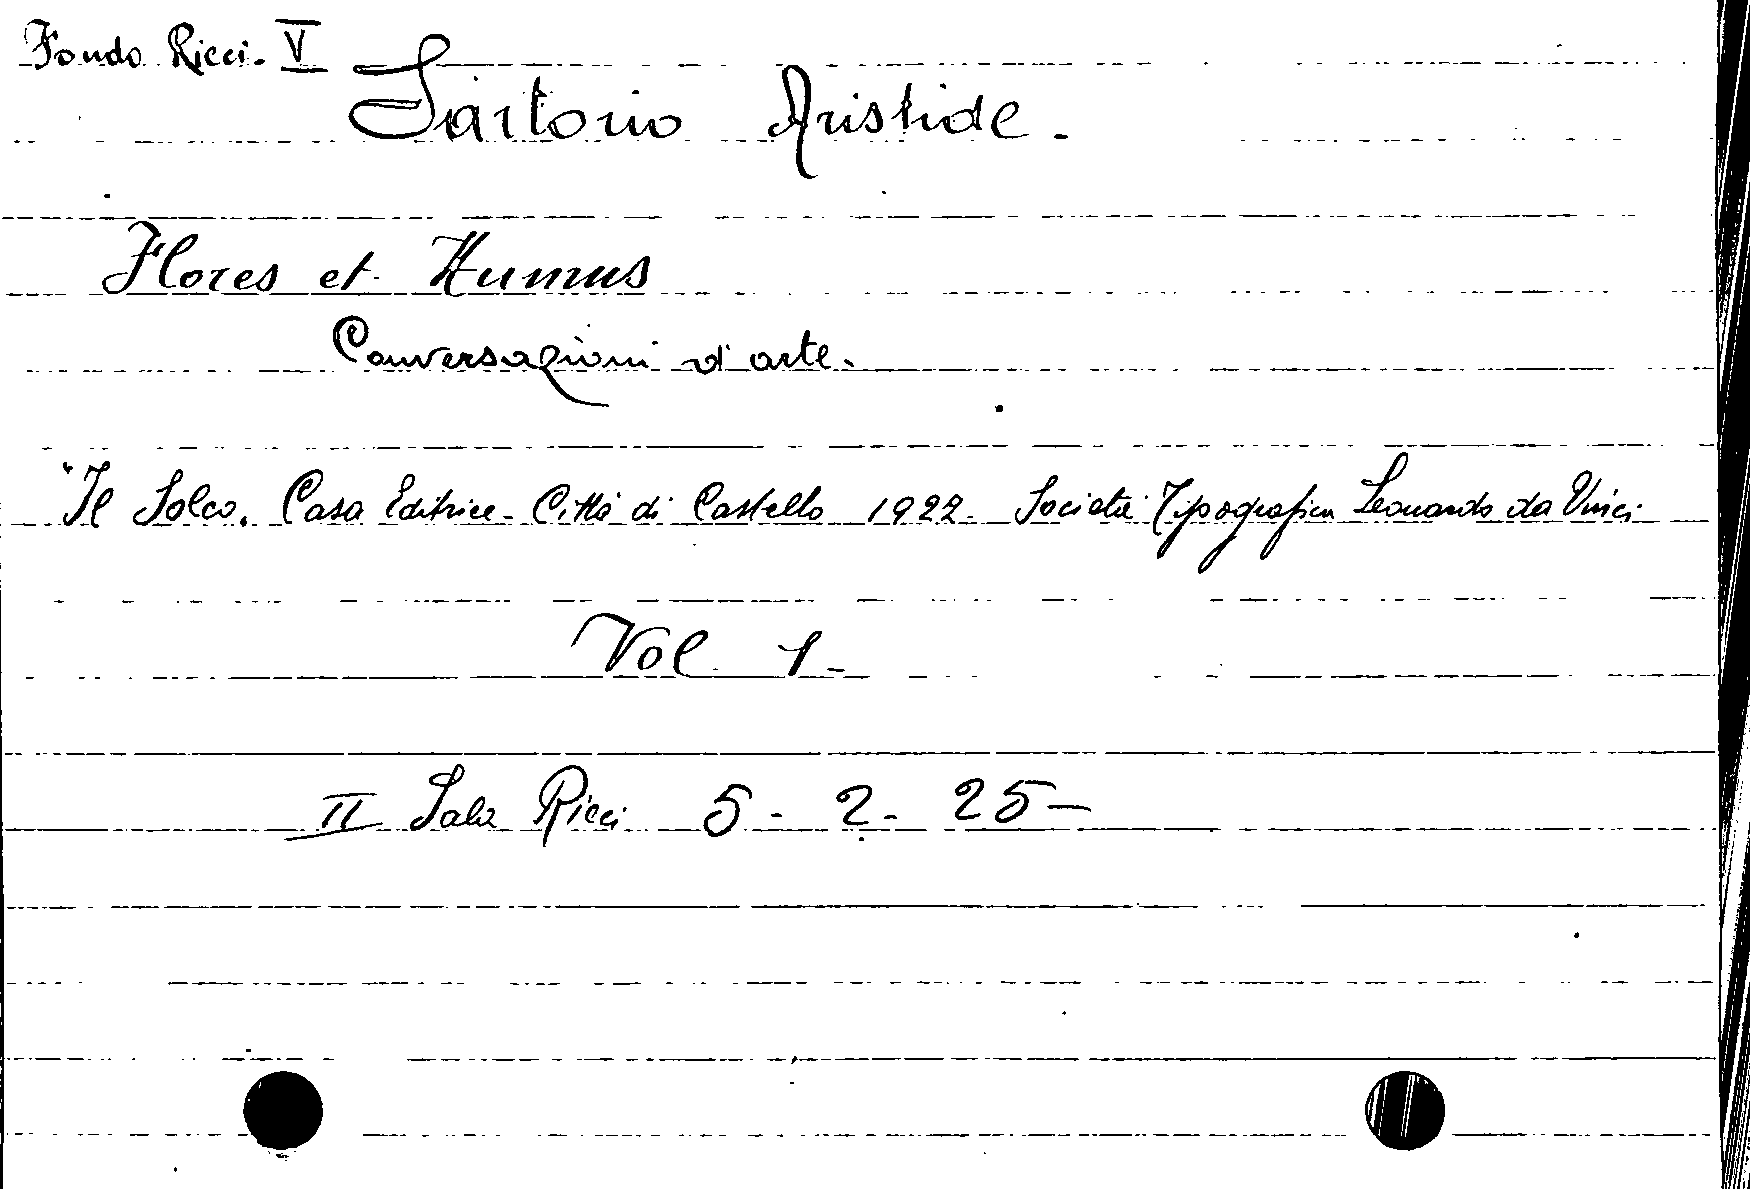 Fondo Ricci. V
Sartorio Aristide.
Flores et Humus
Conversazioni d'arte.
"Il Solco. Casa Editrice - Città di Castello 1922. Società Tipografica Leonardo da Vinci.
Vol 1.
II Sala Ricci 5 - 2 - 25 -